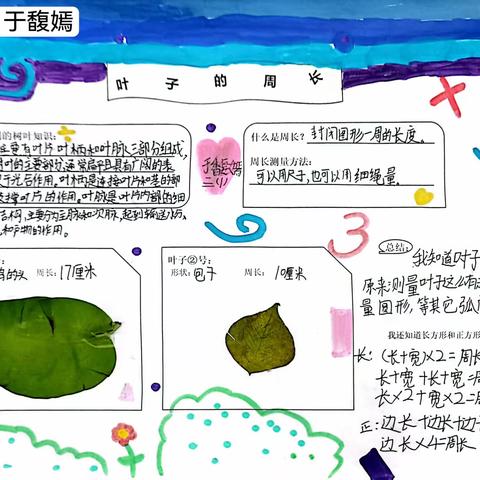 于馥嫣
叶子的周长
的树叶知识:
主要有叶片 叶柄和叶脉三部分组成,
叶的主要部分,通常扁平且具有广阔的表
于光合作用。叶柄是连接叶片和茎的部
支撑叶片的作用。叶脉是叶片内部的细
结构,主要分为主脉和次脉,起到输送水
和矿物的作用。
于馥嫣
三(1)
什么是周长? 封闭图形一周的长度。
周长测量方法:
可以用尺子,也可以用细绳量。
的头 周长: 17厘米
叶子②号:
形状: 包子 周长: 10厘米
总结:
我知道叶子
原来测量叶子这么有
量圆形,等其它弧
我还知道长方形和正方形
长: (长+宽)×2=周长
长+宽+长+宽=
长×2+宽×2=
正: 边长+边长+边
边长×4=周长